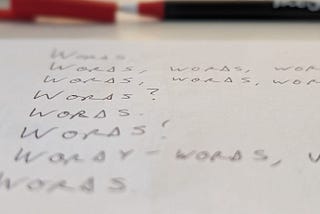 Words.
Words, words, wor
Words, words, wor
Words?
Words.
Words!
Wordy - words, w
Words.